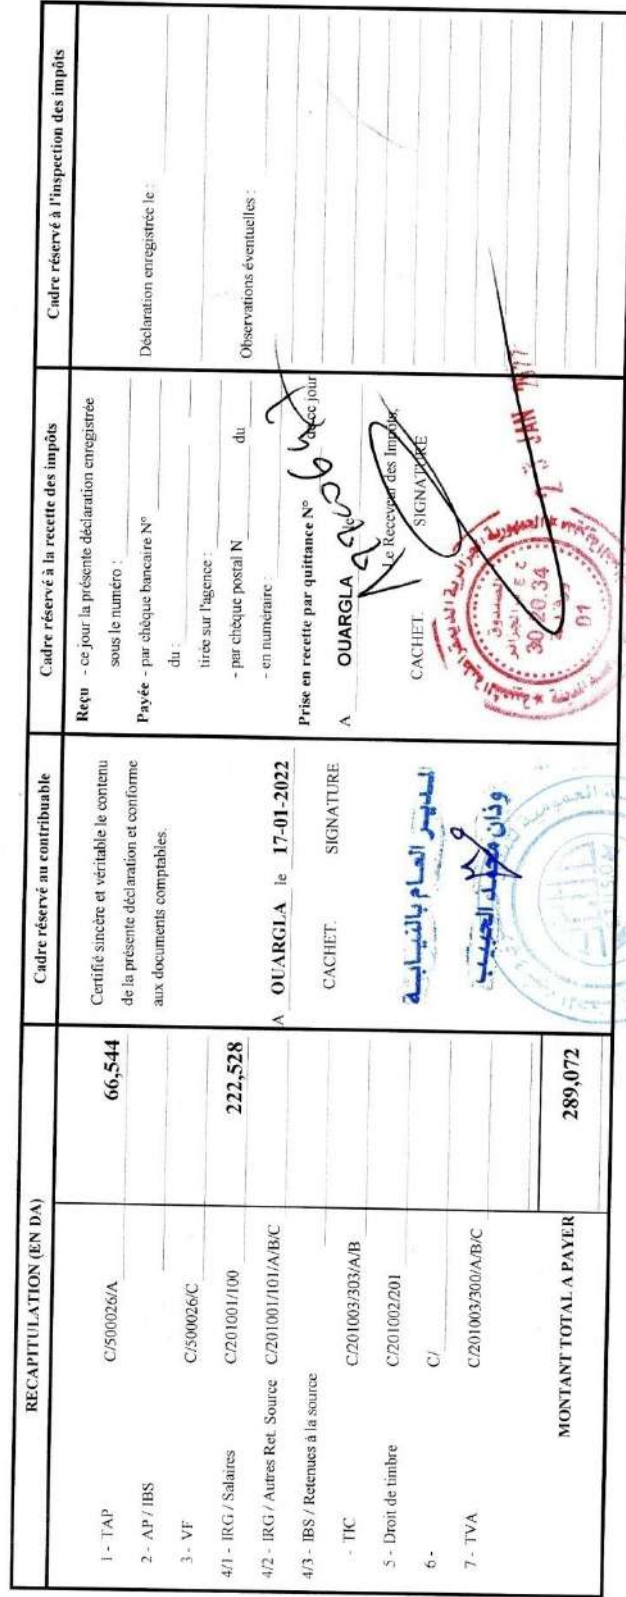 RECAPITULATION (EN DA)
1 - TAP C/500026/A 66,544
2 - AP / IBS
3 - VF C/500026/C
4/1 - IRG / Salaires C/201001/100 222,528
4/2 - IRG / Autres Ret. Source C/201001/101/A/B/C
4/3 - IBS / Retenues à la source
- TIC C/201003/303/A/B
5 - Droit de timbre C/201002/201
6 - C/
7 - TVA C/201003/300/A/B/C
MONTANT TOTAL A PAYER 289,072
Cadre réservé au contribuable
Certifié sincère et véritable le contenu
de la présente déclaration et conforme
aux documents comptables.
A OUARGLA le 17-01-2022
CACHET. SIGNATURE
المدير العام بالنيابة
وذان محمد الحبيب
Cadre réservé à la recette des impôts
Reçu - ce jour la présente déclaration enregistrée
sous le numéro :
Payée - par chèque bancaire N°
du :
tirée sur l'agence :
- par chèque postal N du
- en numéraire :
Prise en recette par quittance N° de ce jour
A OUARGLA le
Le Receveur des Impôts,
CACHET. SIGNATURE
الجمهورية الجزائرية الديمقراطية الشعبية
الصندوق
30.20.34
01
JAN
Cadre réservé à l'inspection des impôts
Déclaration enregistrée le :
Observations éventuelles :